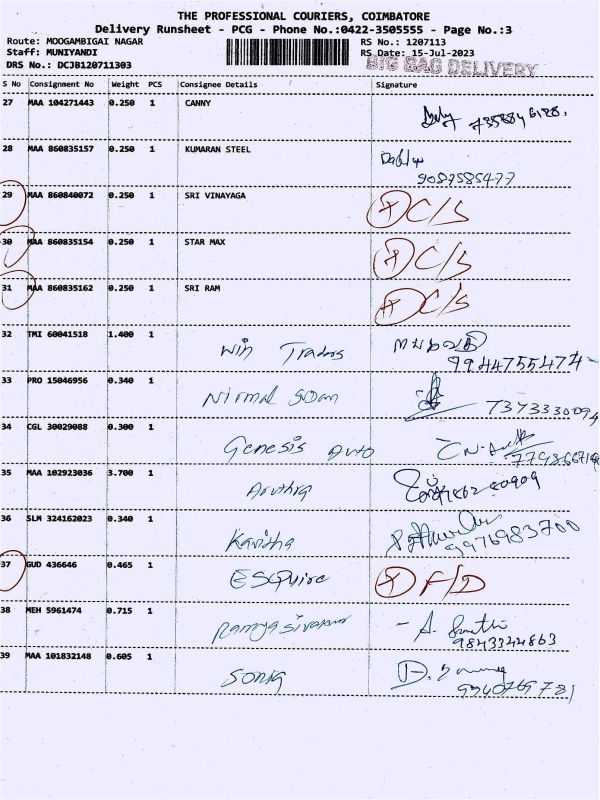 THE PROFESSIONAL COURIERS, COIMBATORE
Delivery Runsheet - PCG - Phone No.:0422-3505555 - Page No.:3
Route: MOOGAMBIGAI NAGAR RS No.: 1207113
Staff: MUNIYANDI RS Date: 15-Jul-2023
DRS No.: DCJB120711303 BIG BAG DELIVERY
S No Consignment No Weight PCS Consignee Details Signature
27 MAA 104271443 0.250 1 CANNY
28 MAA 860835157 0.250 1 KUMARAN STEEL
9087585477
29 MAA 860840072 0.250 1 SRI VINAYAGA X C/S
30 MAA 860835154 0.250 1 STAR MAX X C/S
31 MAA 860835162 0.250 1 SRI RAM X C/S
32 TMI 60041518 1.400 1 Win Traders
9944755474
33 PRO 15046956 0.340 1 Nirmal 7373330094
34 CGL 30029088 0.300 1 Genesis Auto
35 MAA 102923036 3.700 1 Aruthra
36 SLM 324162023 0.340 1 Kavitha
9976983700
37 GUD 436646 0.465 1 ESQuire X F/D
38 MEH 5961474 0.715 1 Ramya sivakumar - A.
9843344863
39 MAA 101832148 0.605 1 Sonia D.